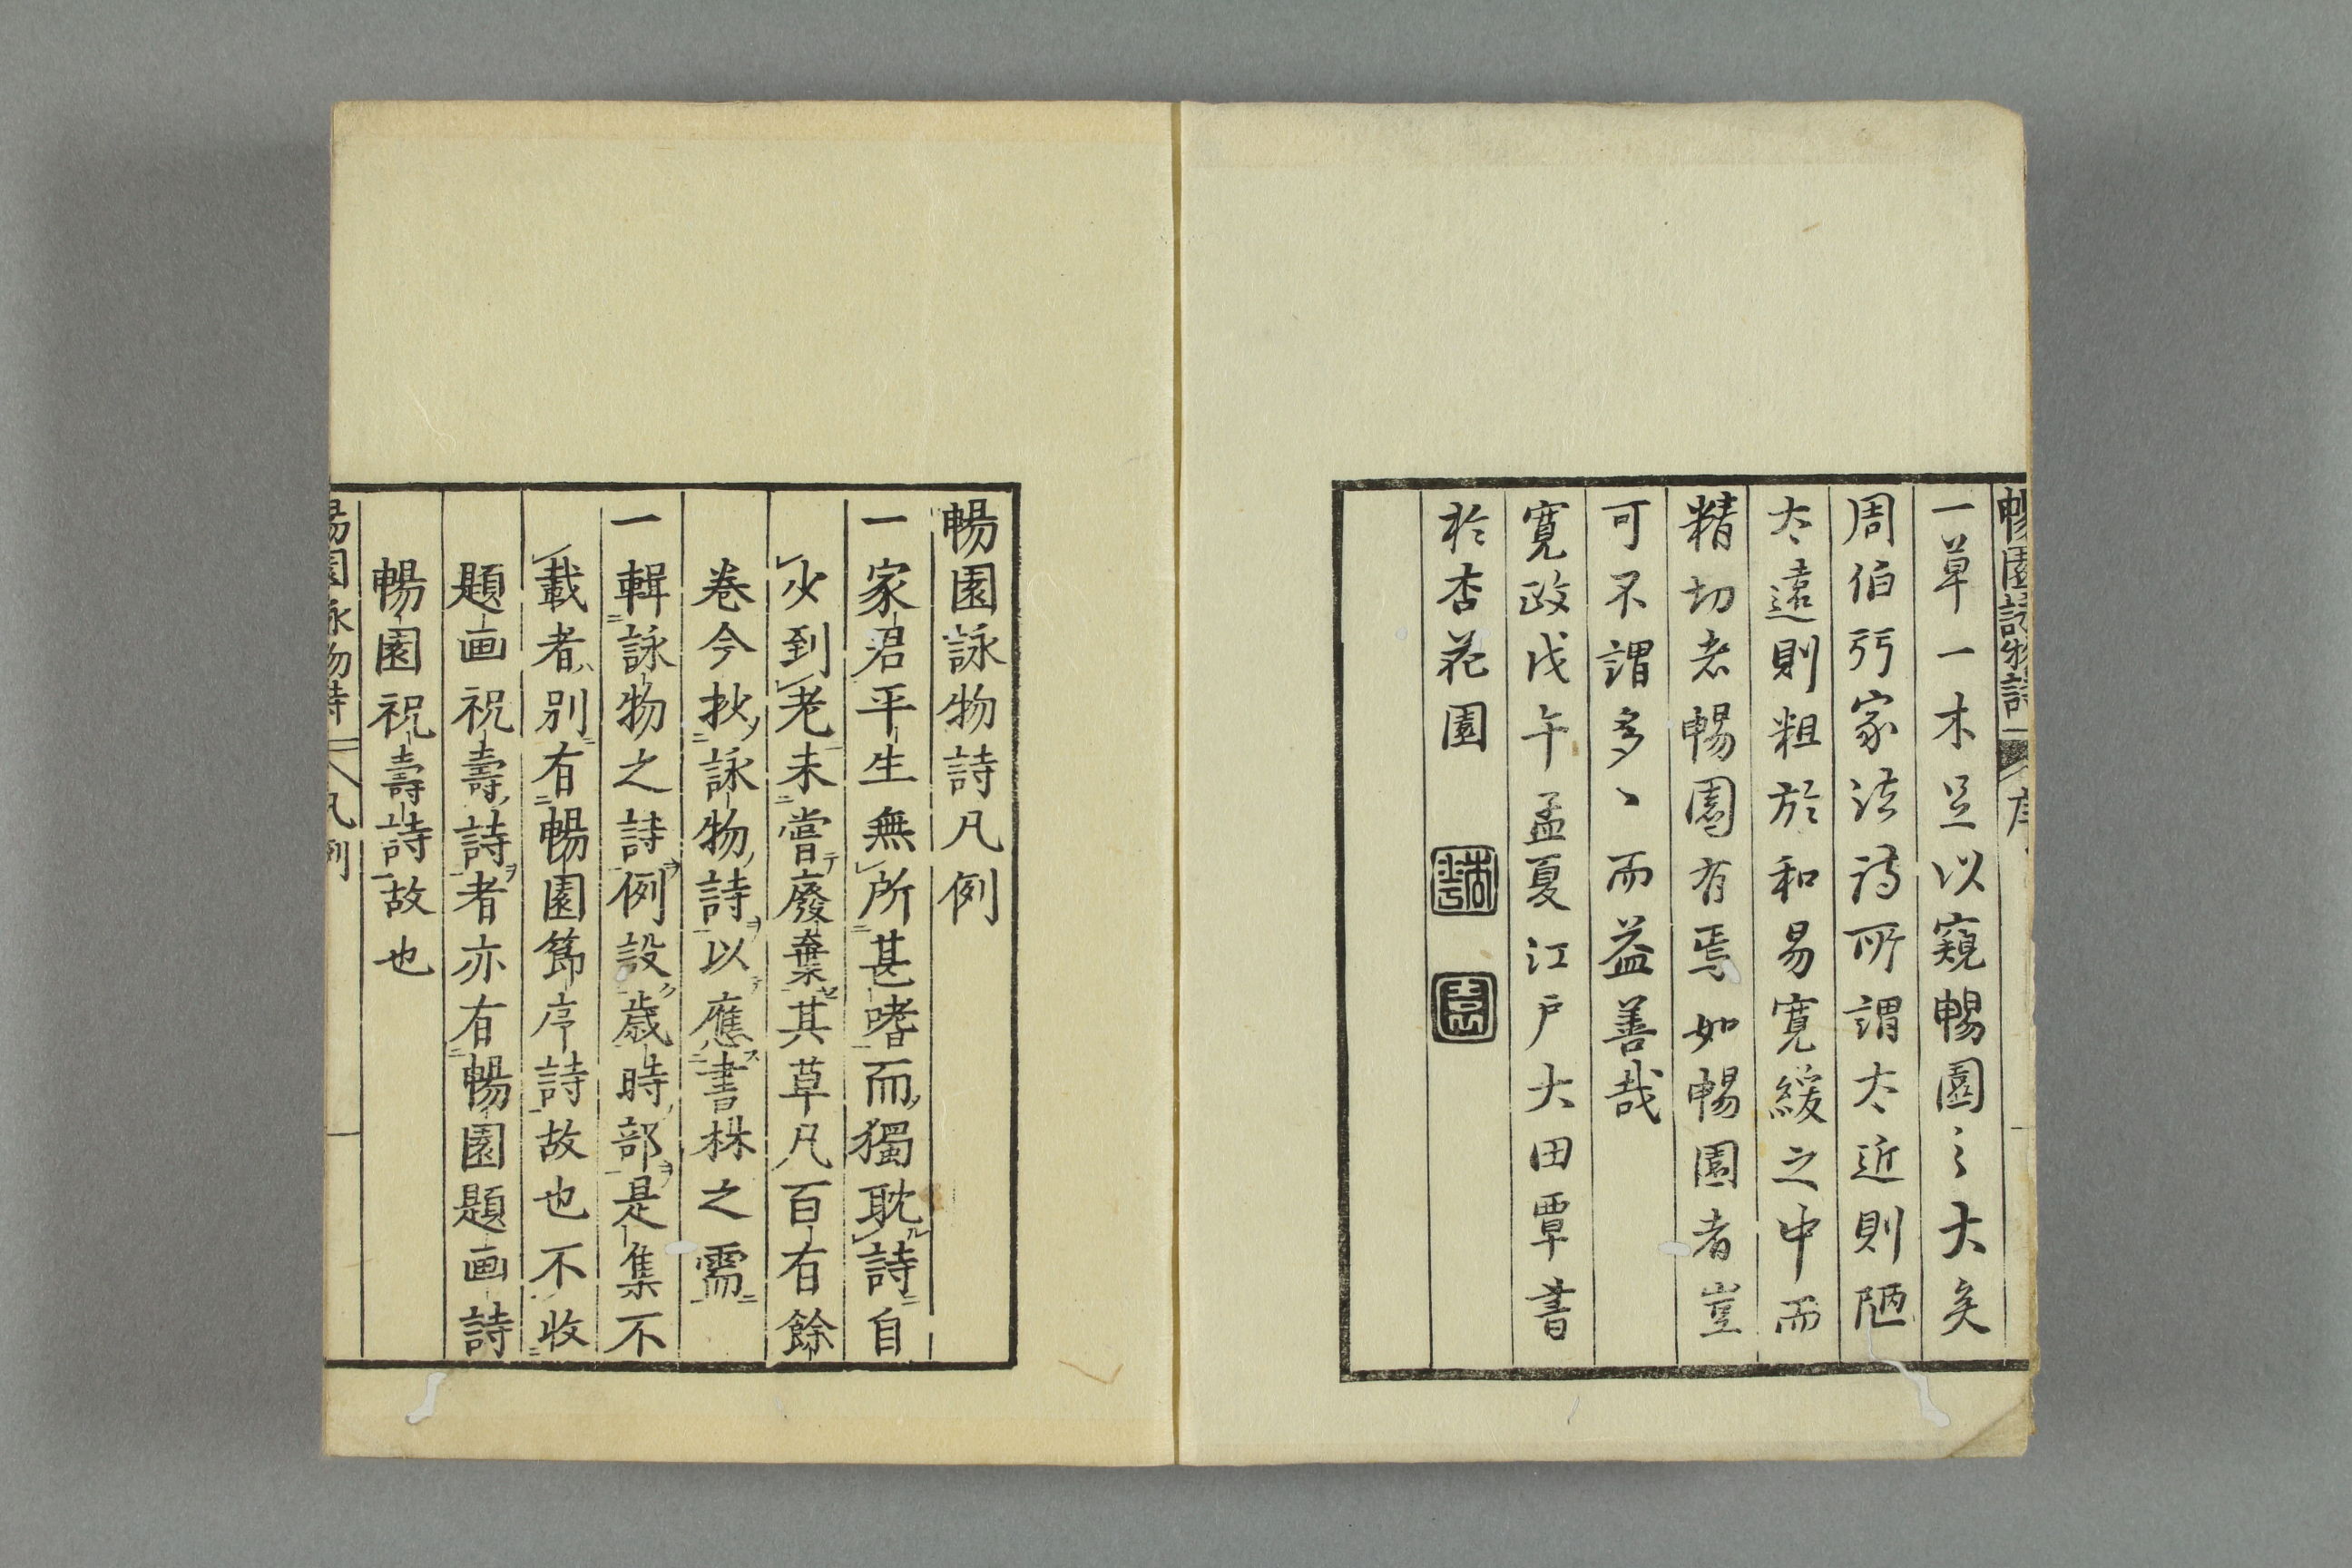 暢園詠物詩
序
一草一木足以窺暢園之大矣
周伯弜家法詩所謂太近則陋
太遠則粗於和易寛緩之中而
精切者暢園有焉如暢園者豈
可不謂多〻而益善哉
寛政戊午孟夏江戸大田覃書
於杏花園
暢園詠物詩凡例
一家君平生無所甚嗜而獨耽詩自
少到老未嘗廢棄其草凡百有餘
巻今抄詠物詩以應書林之需
一輯詠物之詩例設歳時部是集不
載者別有暢園節序詩故也不收
題画祝壽詩者亦有暢園題画詩
暢園祝壽詩故也
暢園詠物詩
凡例